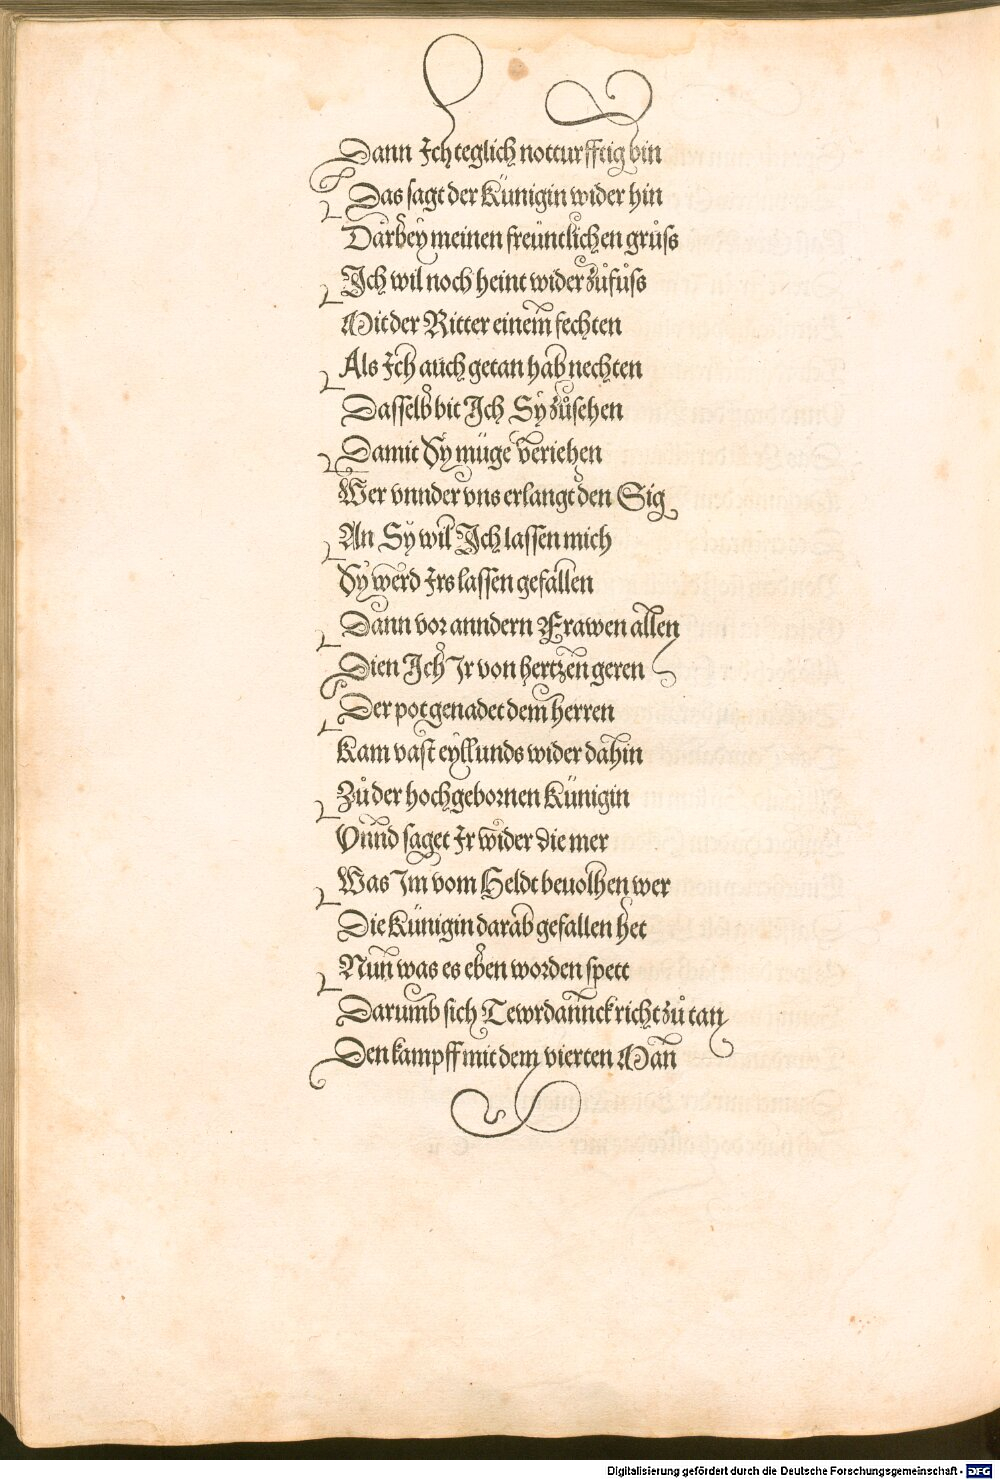 Dann Ich teglich notturfftig bin
Das sagt der Künigin wider hin
Darbey meinen freüntlichen grůss
Ich wil noch heint wider zůfůss
Mit der Ritter einem fechten
Als Ich auch getan hab nechten
Dasselb bit Ich Sy zůsehen
Damit Sy müge veriehen
Wer vnnder vns erlangt den Sig
An Sy wil Ich lassen mich
Sy werd Irs lassen gefallen
Dann vor anndern Frawen allen
Dien Ich Ir von hertzen geren
Der pot genadet dem herren
Kam vast eyllunds wider dahin
Zů der hochgebornen Künigin
Vnnd saget Ir wider die mer
Was Im vom Heldt beuolhen wer
Die Künigin darab gefallen het
Nun was es eben worden spett
Darumb sich Tewrdannck richt zů tan
Den kampff mit dem vierten Man
Digitalisierung gefördert durch die Deutsche Forschungsgemeinschaft - DFG